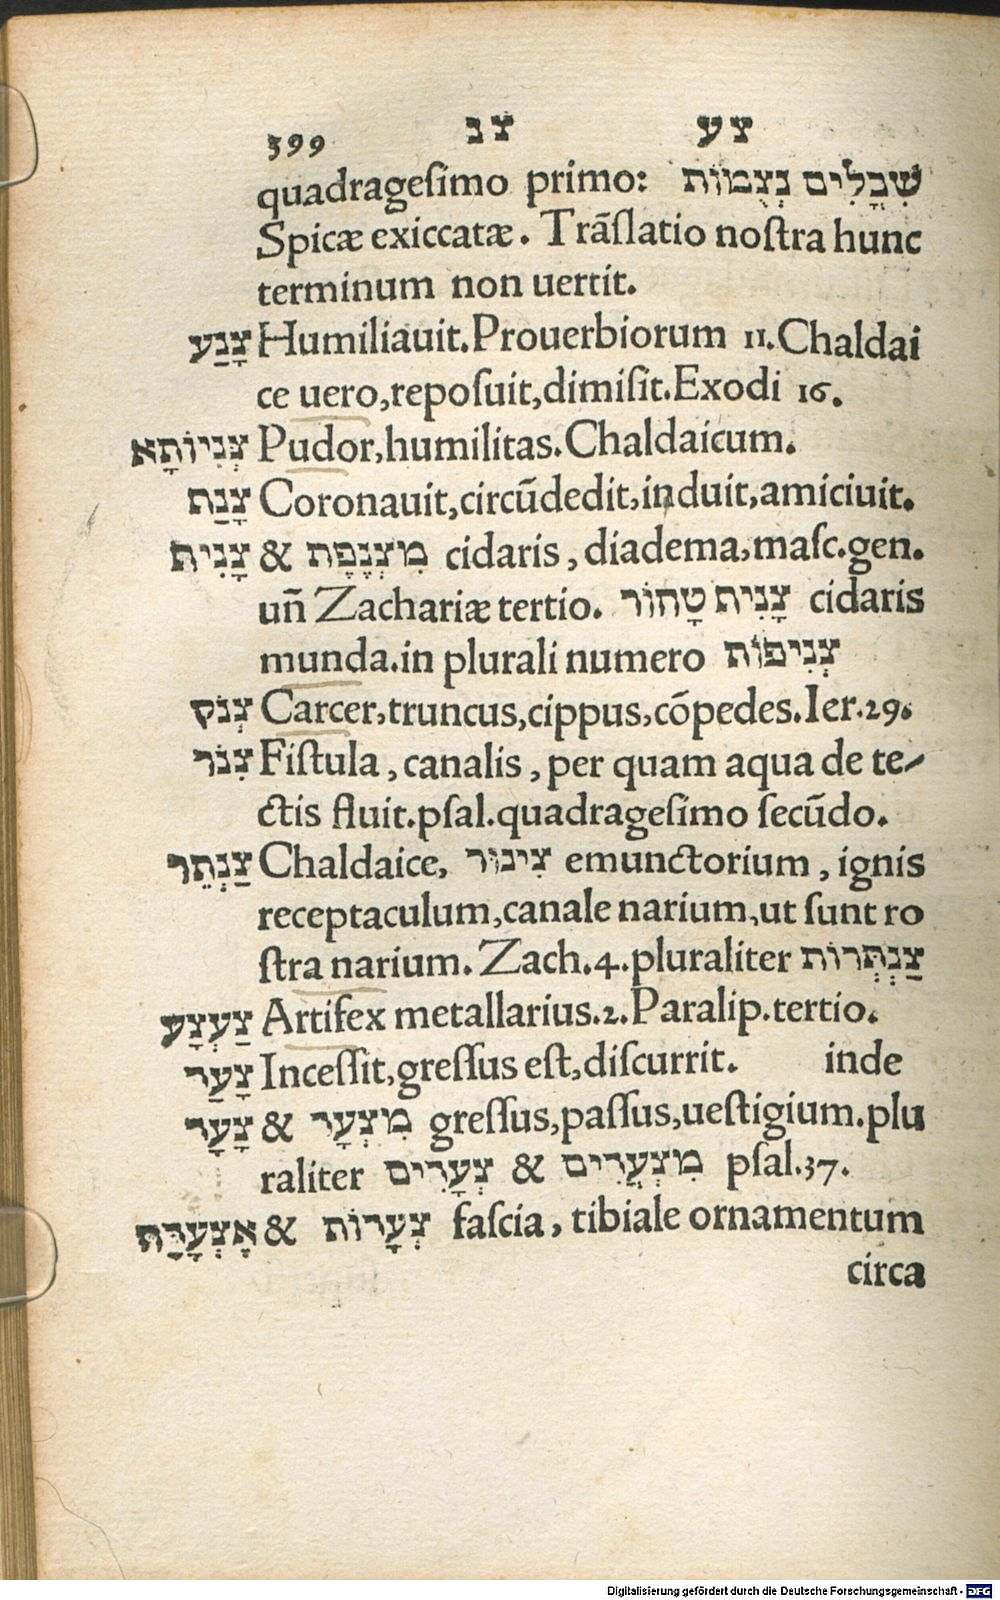 399 צנ צע
quadragesimo primo: שִׁבֳלִים נְצֻמוֹת
Spicæ exiccatæ. Trāslatio nostra hunc
terminum non uertit.
צָנַע Humiliauit. Prouerbiorum 11. Chaldai
ce uero, reposuit, dimisit. Exodi 16.
צְנִיוֹתָא Pudor, humilitas. Chaldaicum.
צָנַת Coronauit, circūdedit, induit, amiciuit.
צָנִית & מִצְנֶפֶת cidaris, diadema, masc. gen.
uñ Zachariæ tertio. צָנִית טָהוֹר cidaris
munda. in plurali numero צְנִיפוֹת
צְנֹק Carcer, truncus, cippus, cōpedes. Ier. 29.
צִנֹר Fistula, canalis, per quam aqua de te-
ctis fluit. psal. quadragesimo secūdo.
צַנְתֵר Chaldaice, צִינוּר emunctorium, ignis
receptaculum, canale narium, ut sunt ro
stra narium. Zach. 4. pluraliter צַנְתְּרוֹת
צַעְצָע Artifex metallarius. 2. Paralip. tertio.
צָעַר Incessit, gressus est, discurrit. inde
צָעָר & מִצְעָר gressus, passus, uestigium. plu
raliter צְעָרִים & מִצְעֲרִים psal. 37.
אֶצְעָרָה & צְעָרוֹת fascia, tibiale ornamentum
circa
Digitalisierung gefördert durch die Deutsche Forschungsgemeinschaft - DFG